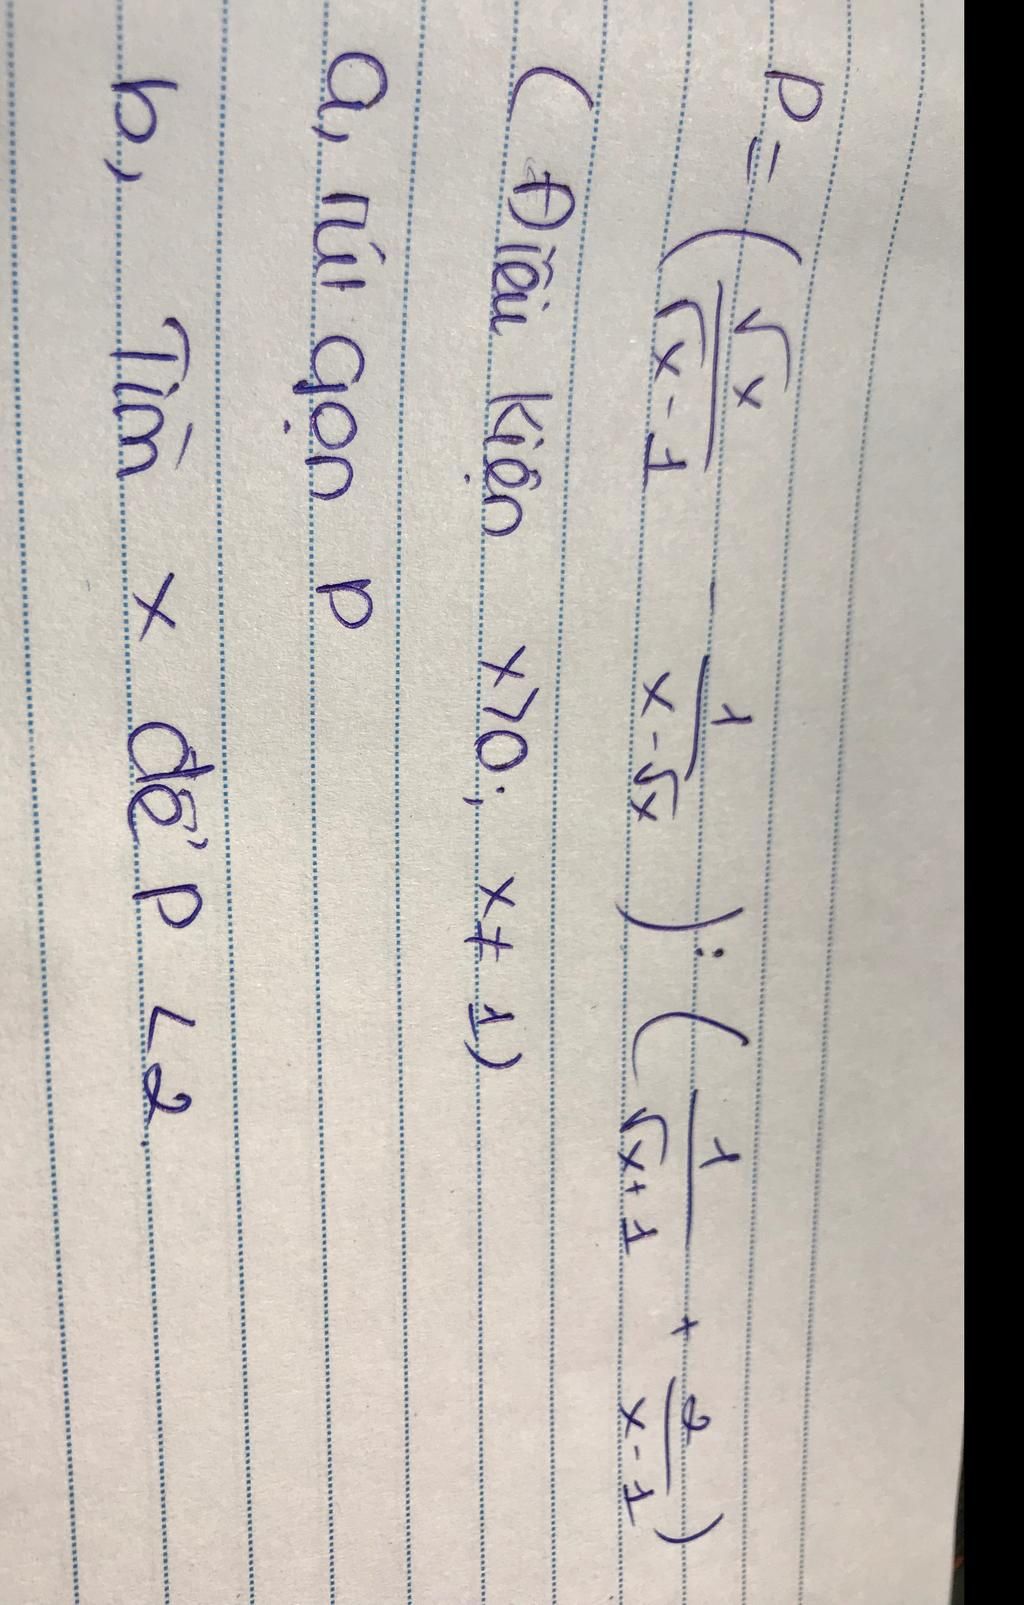 P = ( √x / (√x - 1) - 1 / (x - √x) ) : ( 1 / (√x + 1) + 2 / (x - 1) )
( Điều kiện x>0; x ≠ 1)
a, rút gọn P
b, Tìm x để P < 2.